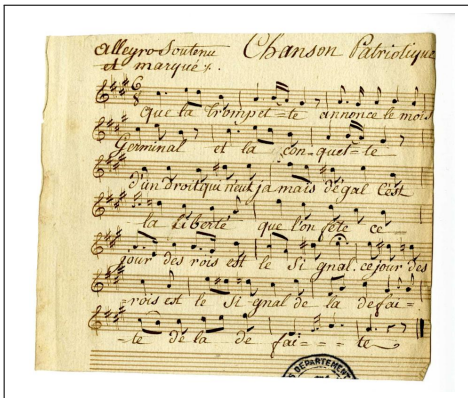 Allegro Soutenu Chanson Patriotique
et marqué
Que la Trompet=te annonce le mois
Germinal et la con-quet=te
d'un droit qui neut jamais degal C'est
la Liberté que l'on fête ce
jour des rois est le Signal. ce jour des
=rois est le Signal de la defai=
-te de la defai===te
DEPARTEMENT